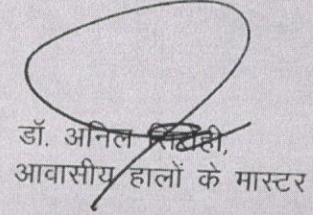 डॉ. अनिल सिरोही,
आवासीय हालों के मास्टर